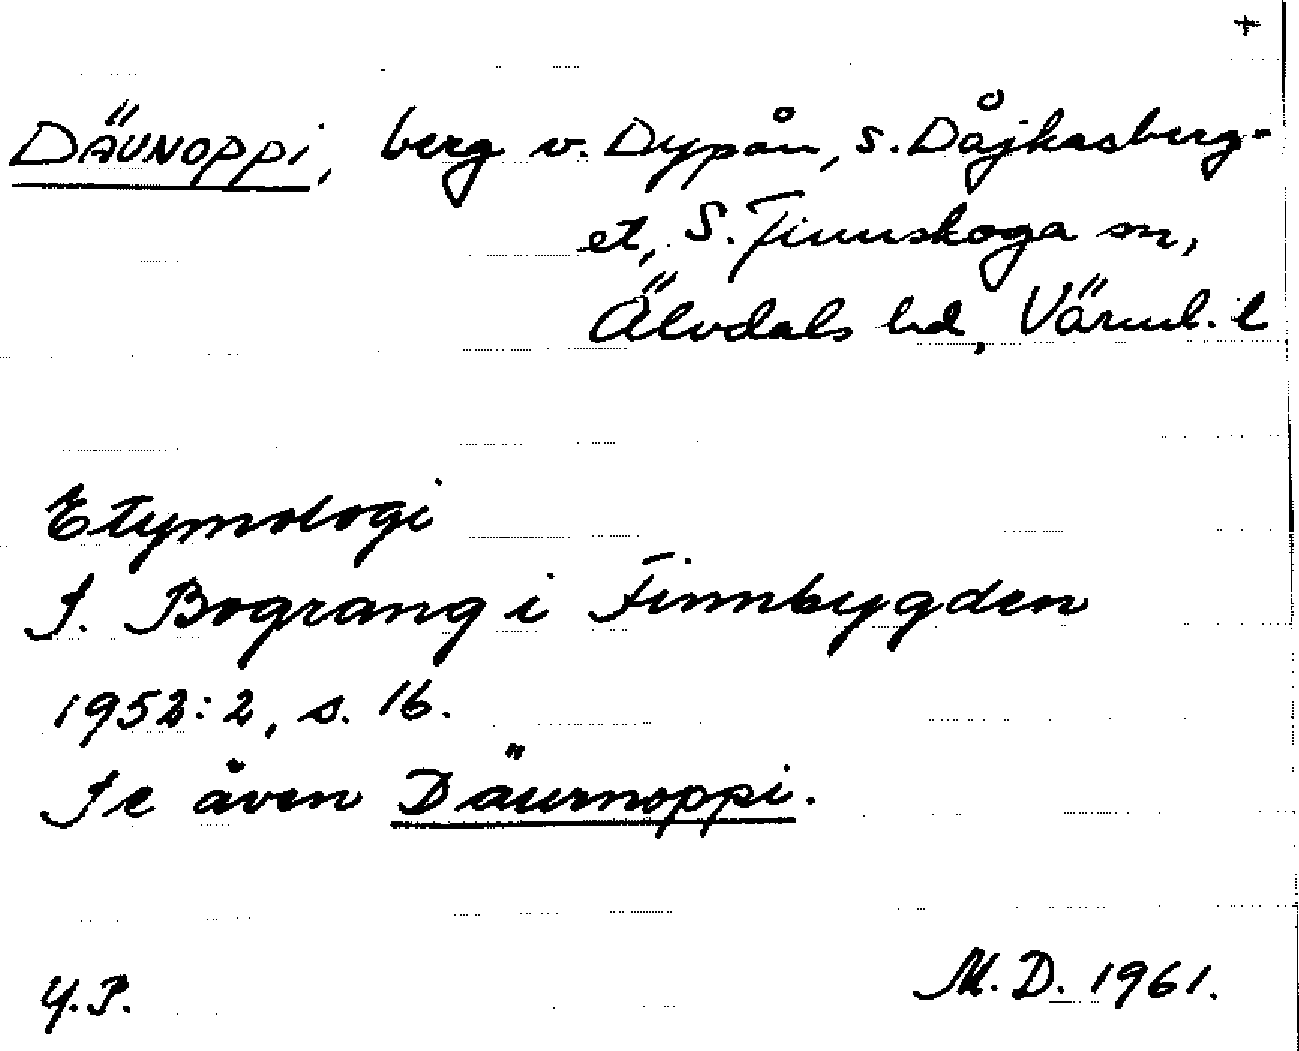 +
DÄUNOPPI, berg v. Dypån, s. Dåjkasberg-
et, S. Finnskoga sn,
Älvdals hd, Värml. l
Etymologi
J. Bograng i Finnbygden
1952:2, s. 16.
Se även Däurnoppi.
Y.P. M.D. 1961.